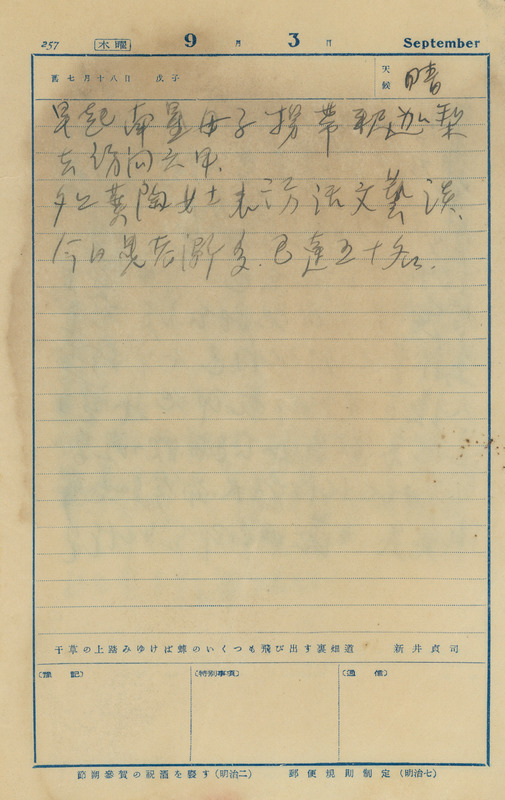 257 木曜 9月3日 September
舊七月十八日 戊子 天候 晴
早起南星母子携帶釋迦梨
去訪問六甲.
夕公黃陶女士來訪話文藝談.
今日患者漸多.已達五十名.
干草の上踏みゆけば蜂のいくつも飛び出す裏畑道 新井貞司
〔豫記〕 〔特別事項〕 〔通信〕
節朔參賀の祝酒を饗す(明治二) 郵便規則制定(明治七)